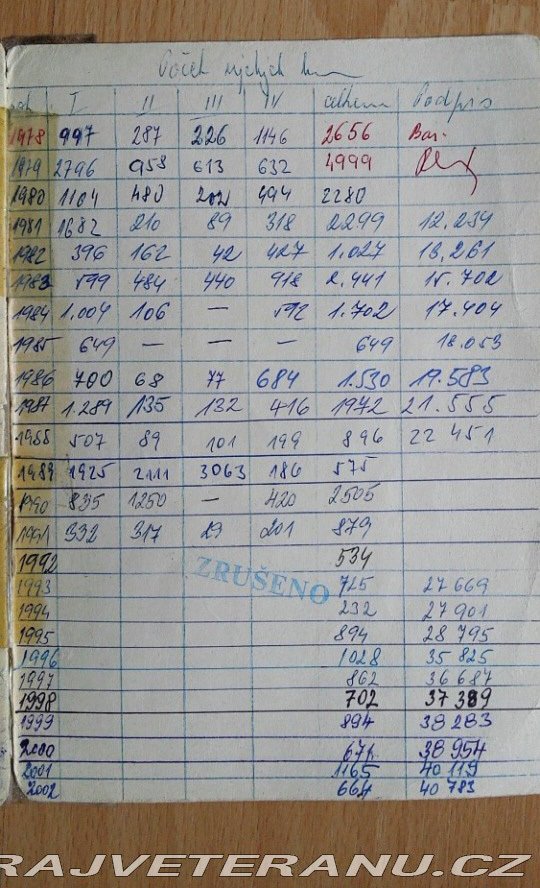 Počet ujetých km
rok I II III IV celkem Podpis
1978 997 287 226 1146 2656 Bar.
1979 2796 958 613 632 4999
1980 1104 480 202 494 2280
1981 1682 210 89 318 2299 12.234
1982 396 162 42 427 1.027 13,261
1983 599 484 440 918 2.441 15.702
1984 1.004 106 — 592 1.702 17.404
1985 649 — — — 649 18.053
1986 700 68 77 684 1.530 19.583
1987 1.289 135 132 416 1972 21.555
1988 507 89 101 199 896 22 451
1989 1925 2111 3063 186 575
1990 835 1250 — 420 2505
1991 332 317 29 201 879
1992 534
ZRUŠENO
1993 725 27 669
1994 232 27 901
1995 894 28 795
1996 1028 35 825
1997 862 36 687
1998 702 37 389
1999 894 38 283
2000 671 38 954
2001 1165 40 119
2002 664 40 783
RAJVETERANU.CZ